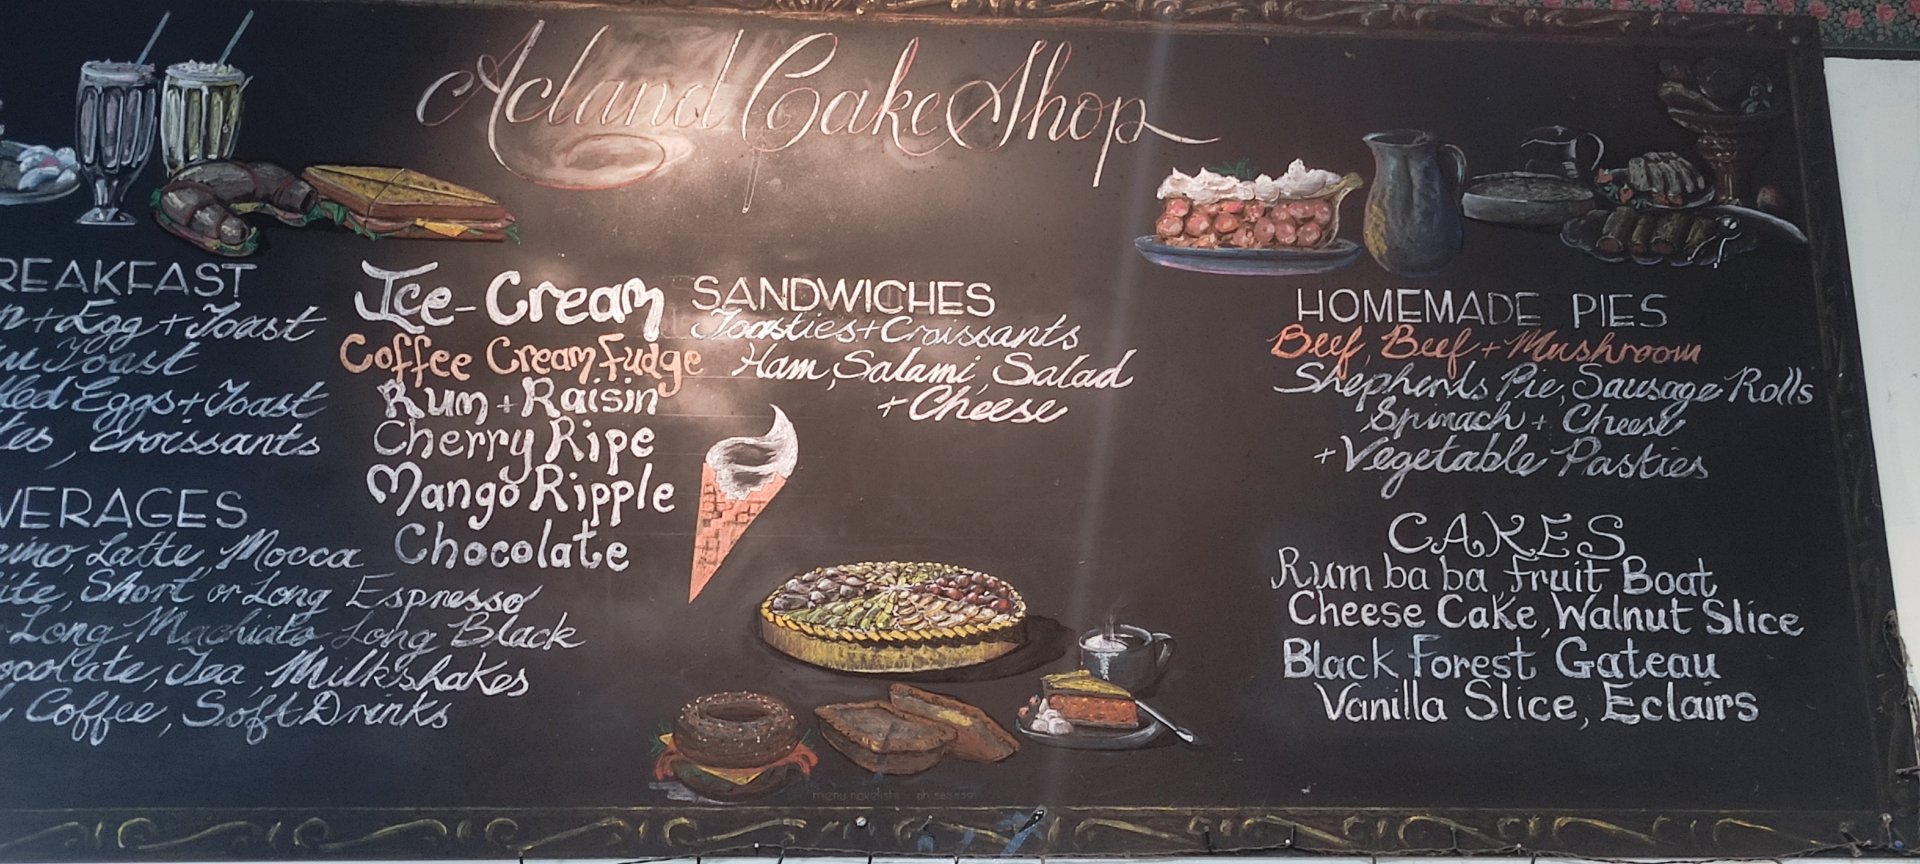 Acland Cake Shop
REAKFAST
n + Egg + Toast
Toast
led Eggs + Toast
tes, Croissants
VERAGES
cino, Latte, Mocca
ite, Short or Long Espresso
Long Machiato Long Black
ocolate, Tea, Milkshakes
Coffee, Soft Drinks
Ice-Cream
Coffee Cream Fudge
Rum + Raisin
Cherry Ripe
Mango Ripple
Chocolate
SANDWICHES
Toasties + Croissants
Ham, Salami, Salad
+ Cheese
HOMEMADE PIES
Beef, Beef + Mushroom
Shepherds Pie, Sausage Rolls
Spinach + Cheese
+ Vegetable Pasties
CAKES
Rum ba ba, Fruit Boat
Cheese Cake, Walnut Slice
Black Forest Gateau
Vanilla Slice, Eclairs
menu novelists ph